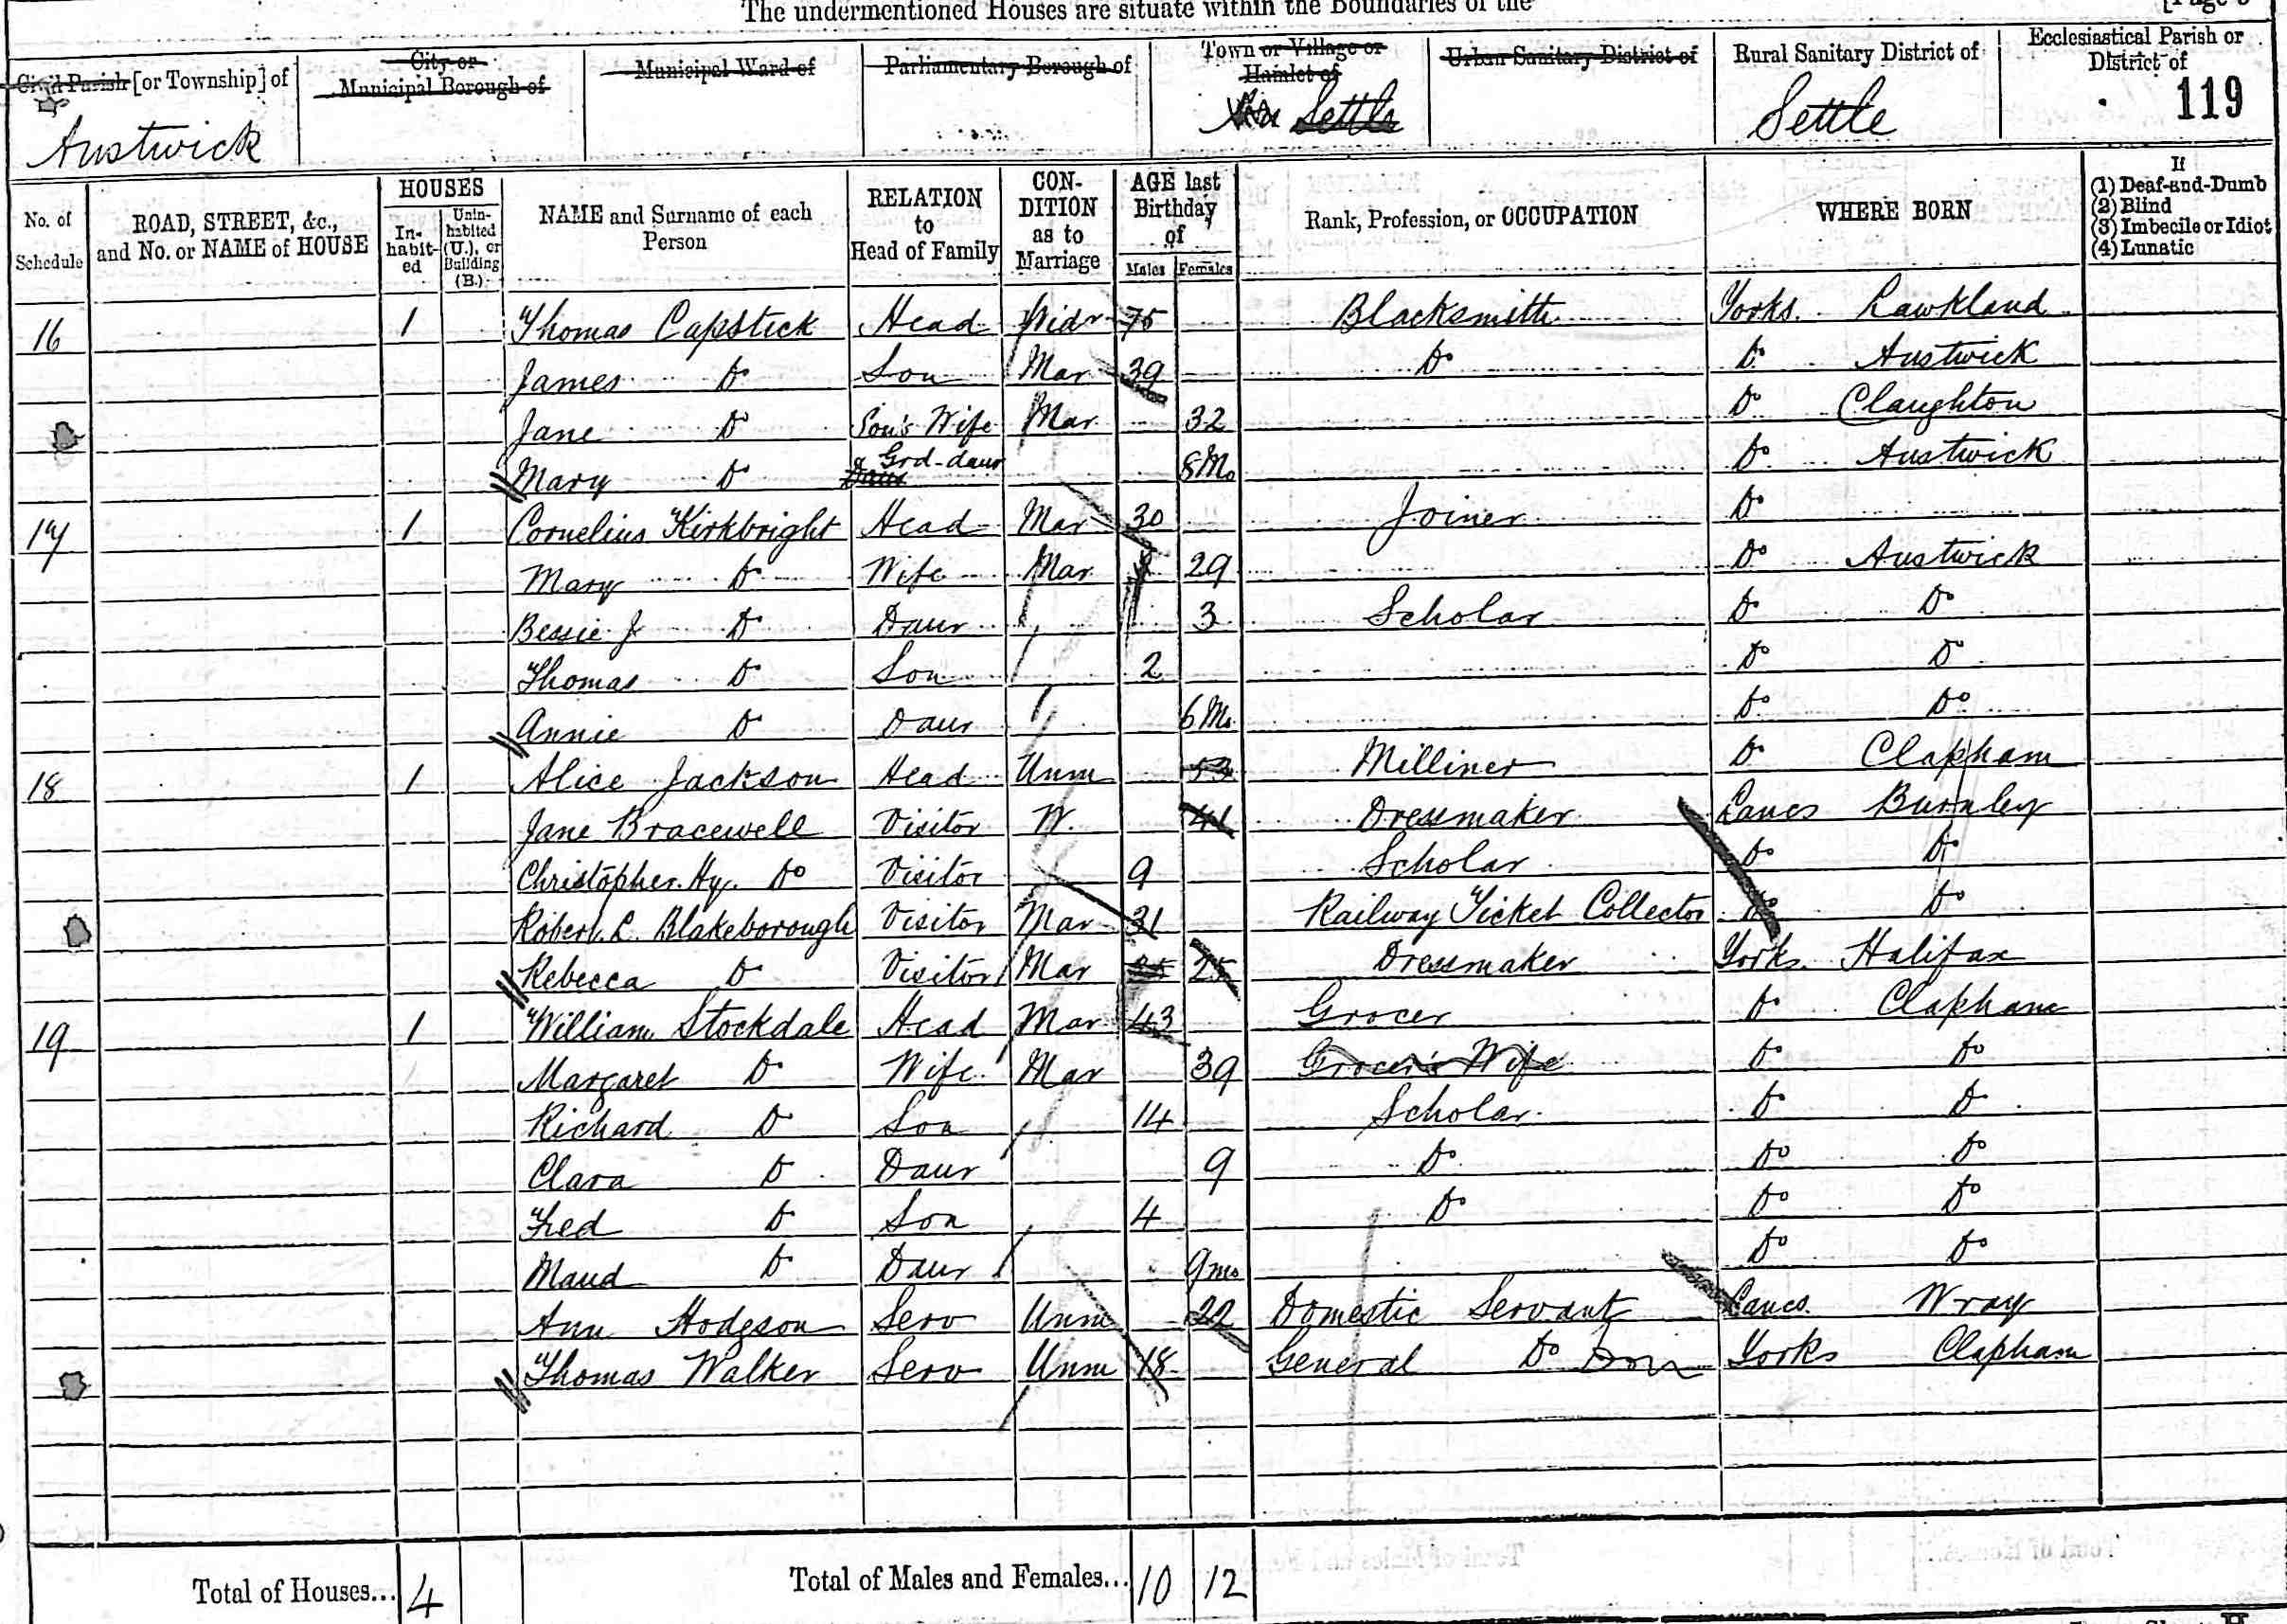 The undermentioned Houses are situate within the Boundaries of the [Page
Civil Parish [or Township] of City or Municipal Borough of Municipal Ward of Parliamentary Borough of Town or Village or Hamlet of Urban Sanitary District of Rural Sanitary District of Ecclesiastical Parish or District of
Austwick Settle Settle 119
No. of Schedule ROAD, STREET, &c., and No. or NAME of HOUSE HOUSES In-habit-ed Unin-habited (U.), or Building (B.) NAME and Surname of each Person RELATION to Head of Family CON-DITION as to Marriage AGE last Birthday of Males Females Rank, Profession, or OCCUPATION WHERE BORN If (1) Deaf-and-Dumb (2) Blind (3) Imbecile or Idiot (4) Lunatic
16 1 Thomas Capstick Head Widr 75 Blacksmith Yorks. Lawkland
James Do Son Mar 39 Do Do Austwick
Jane Do Son's Wife Mar 32 Do Claughton
Mary Do Daur Grd-daur 8 Mo Do Austwick
17 1 Cornelius Kirkbright Head Mar 30 Joiner Do
Mary Do Wife Mar 29 Do Austwick
Bessie J Do Daur 3 Scholar Do Do
Thomas Do Son 2 Do Do
Annie Do Daur 6 Mo. Do Do
18 1 Alice Jackson Head Unm 53 Milliner Do Clapham
Jane Bracewell Visitor W. 41 Dressmaker Lancs Burnley
Christopher Hy. Do Visitor 9 Scholar Do Do
Robert L. Blakeborough Visitor Mar 31 Railway Ticket Collector Do Do
Rebecca Do Visitor Mar 25 25 Dressmaker Yorks. Halifax
19 1 William Stockdale Head Mar 43 Grocer Do Clapham
Margaret Do Wife Mar 39 Grocer's Wife Do Do
Richard Do Son 14 Scholar Do Do
Clara Do Daur 9 Do Do Do
Fred Do Son 4 Do Do Do
Maud Do Daur 9 mo Do Do
Ann Hodgson Serv Unm 22 Domestic Servant Lancs. Wray
Thomas Walker Serv Unm 18 General Do Dom Yorks Clapham
Total of Houses... 4 Total of Males and Females... 10 12